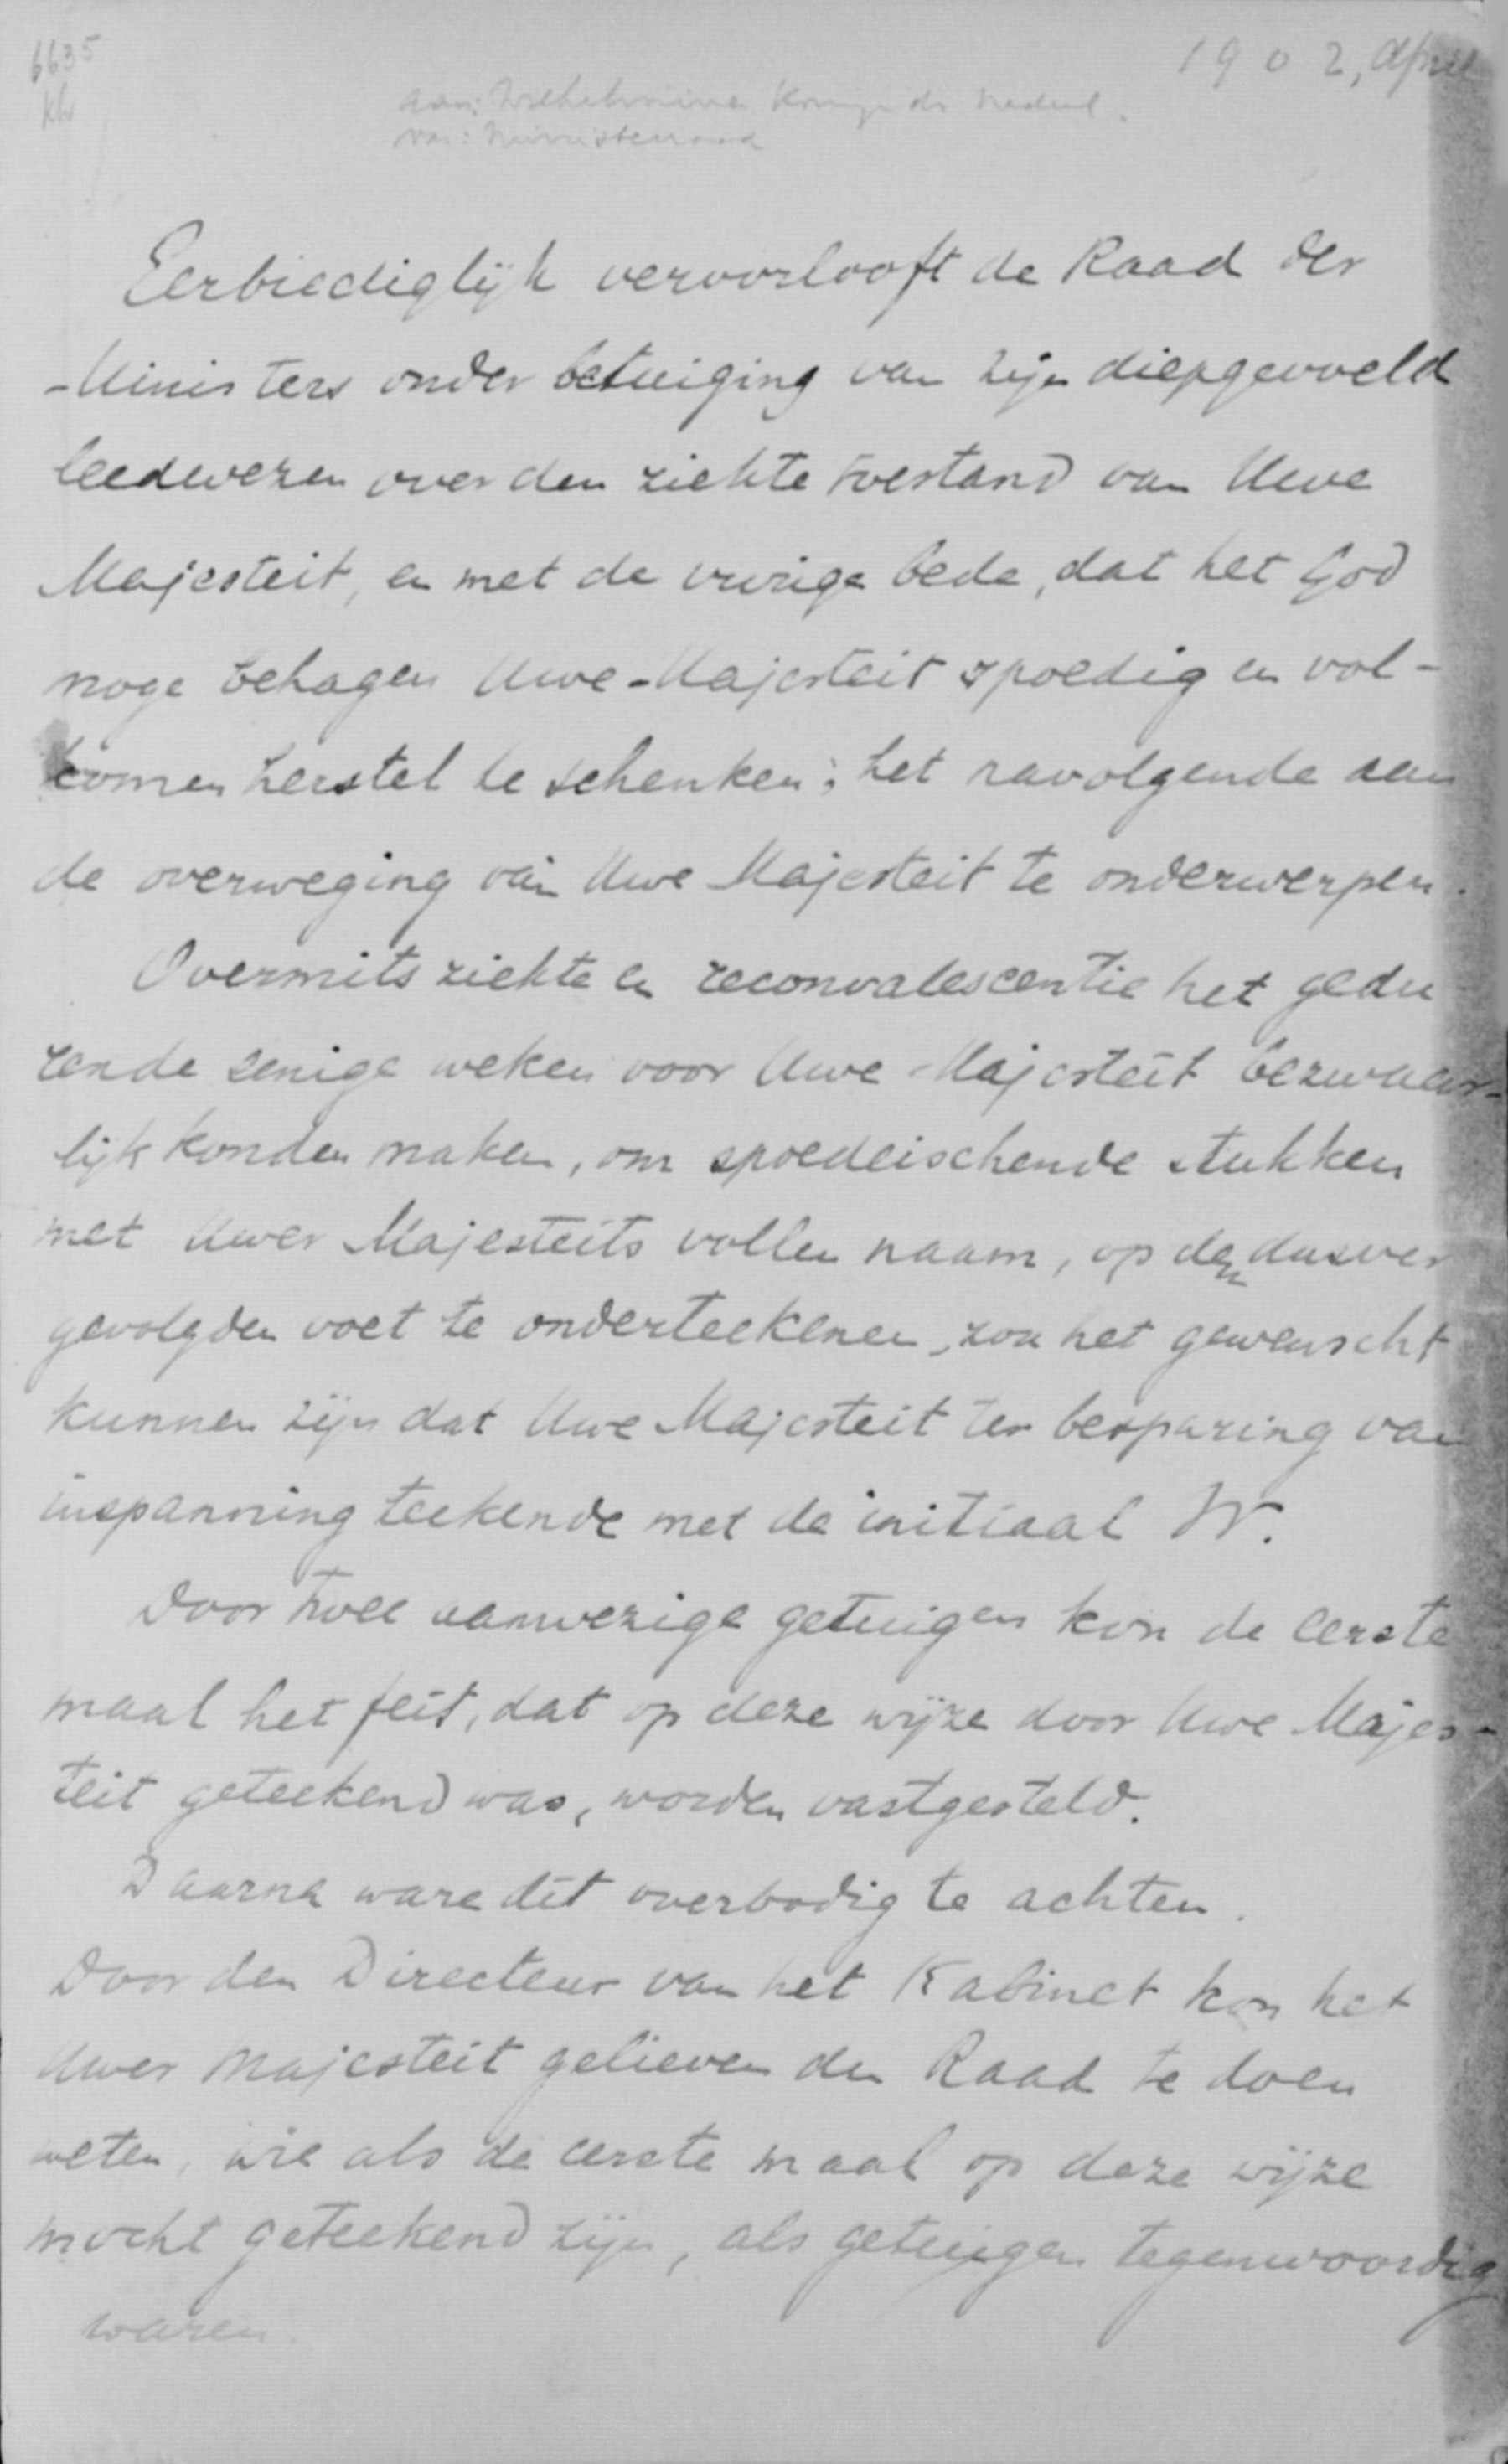 6635
1902, April
Kh
aan: Wilhelmina Kon. der Nederl.
van: Ministerraad
Eerbiediglijk veroorlooft de Raad der
Ministers onder betuiging van zijn diepgevoeld
leedwezen over den ziekte toestand van Uwe
Majesteit, en met de vurige bede, dat het God
moge behagen Uwe Majesteit spoedig en vol-
komen herstel te schenken; het navolgende aan
de overweging van Uwe Majesteit te onderwerpen.
Overmits ziekte en reconvalescentie het gedu
rende eenige weken voor Uwe Majesteit bezwaar-
lijk konden maken, om spoedeischende stukken
met Uwer Majesteits vollen naam, op den dusver
gevolgden voet te onderteekenen, zou het gewenscht
kunnen zijn dat Uwe Majesteit ter besparing van
inspanning teekende met de initiaal W.
Door twee aanwezige getuigen kon de eerste
maal het feit, dat op deze wijze door Uwe Majes-
teit geteekend was, worden vastgesteld.
Daarna ware dit overbodig te achten.
Door den Directeur van het Kabinet kon het
Uwer Majesteit gelieven den Raad te doen
weten, wie als de eerste maal op deze wijze
mocht geteekend zijn, als getuigen tegenwoordig
waren.